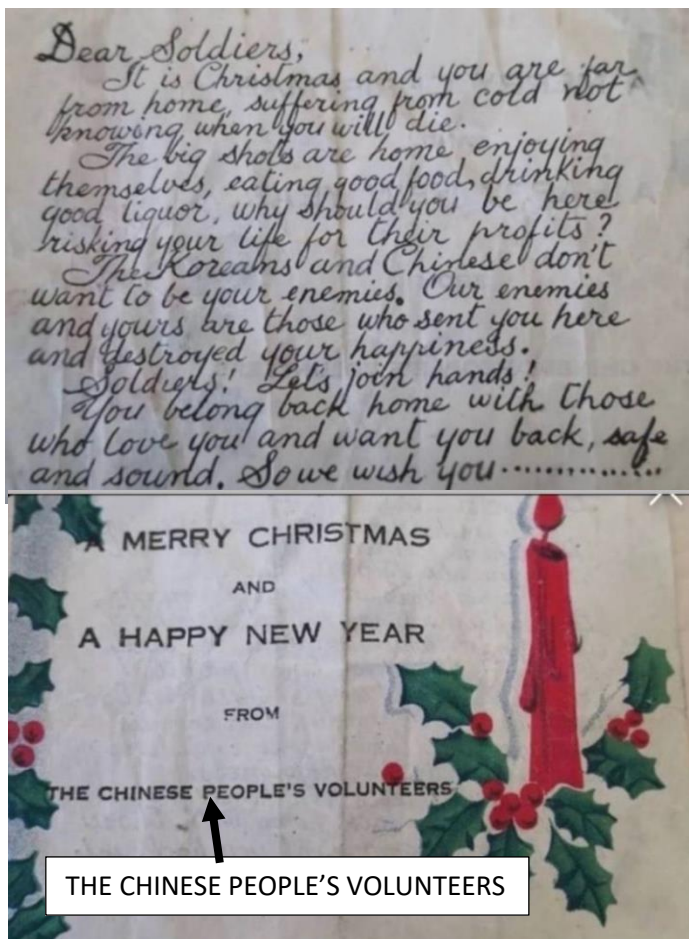 Dear Soldiers,
It is Christmas and you are far
from home, suffering from cold not
knowing when you will die.
The big shots are home enjoying
themselves, eating good food, drinking
good liquor, why should you be here
risking your life for their profits?
The Koreans and Chinese don't
want to be your enemies. Our enemies
and yours are those who sent you here
and destroyed your happiness.
Soldiers! Let's join hands!
You belong back home with those
who love you and want you back, safe
and sound. So we wish you..............
A MERRY CHRISTMAS
AND
A HAPPY NEW YEAR
FROM
THE CHINESE PEOPLE'S VOLUNTEERS
THE CHINESE PEOPLE'S VOLUNTEERS